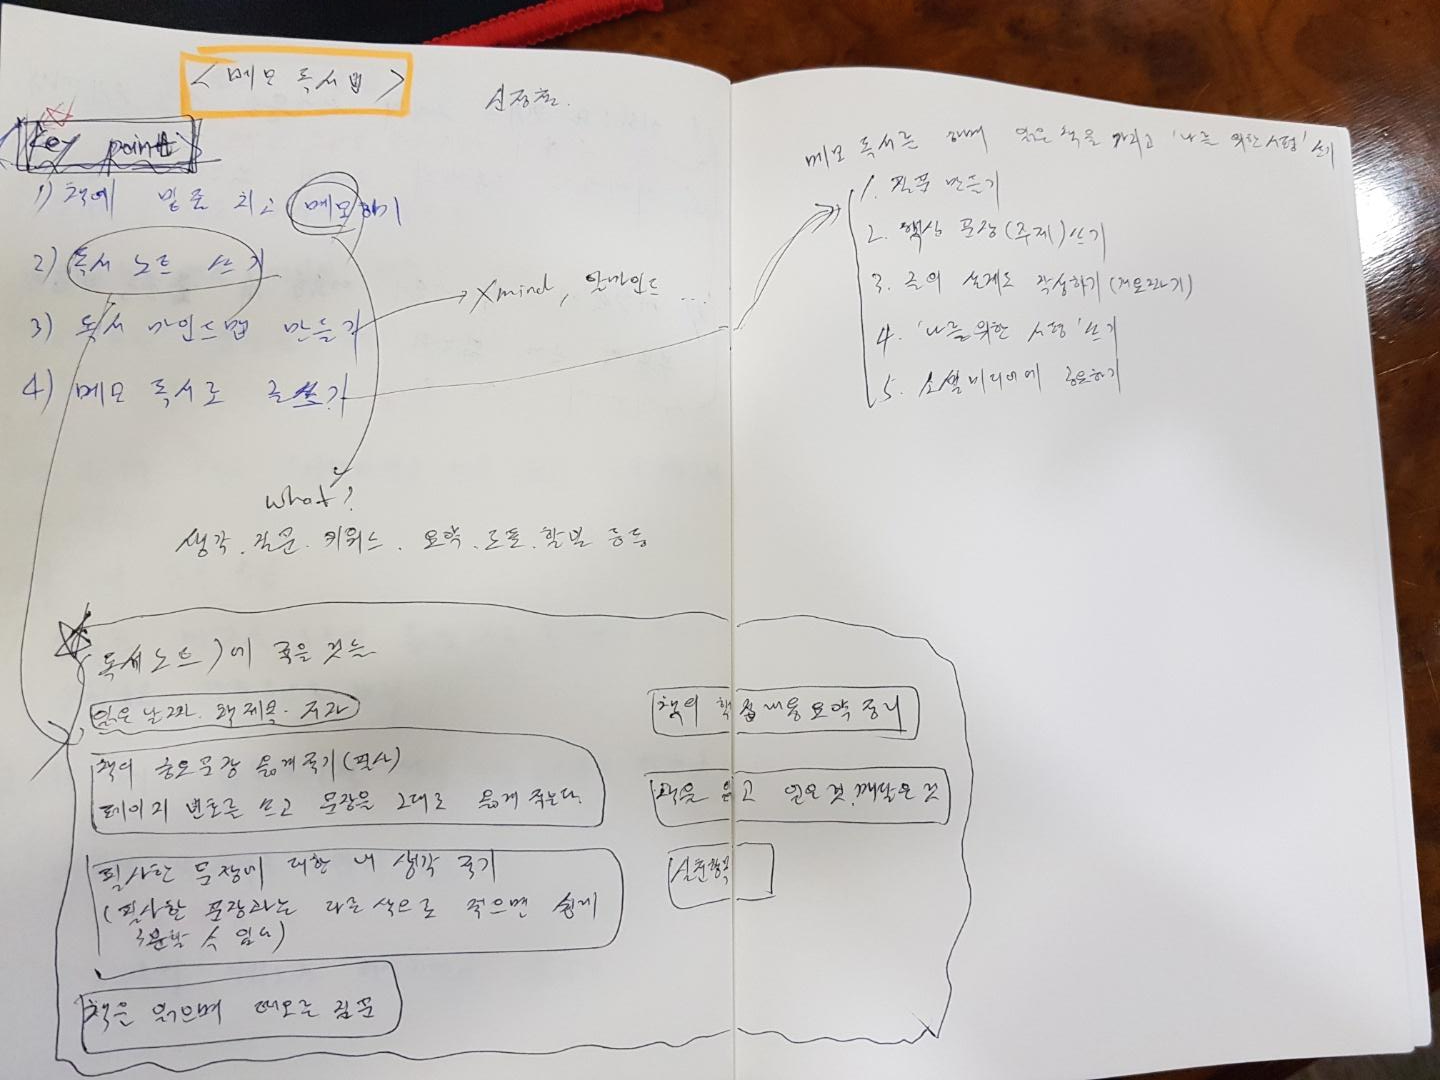 < 메모 독서법 >
신정철.
key point
1) 책에 밑줄 치고 메모하기
2) 독서 노트 쓰기
3) 독서 마인드맵 만들기
4) 메모 독서로 글쓰기
→ Xmind, 알마인드 ...
what?
생각. 질문. 키워드. 요약. 도표. 할일 등등
독서노트)에 적을 것은
읽은 날짜. 책 제목. 저자
책의 중요문장 옮겨적기(필사)
페이지 번호를 쓰고 문장을 그대로 옮겨 적는다.
필사한 문장에 대한 내 생각 적기
(필사한 문장과는 다른 색으로 적으면 쉽게
구분할 수 있다)
책을 읽으며 떠오른 질문
책의 핵심내용요약 정리
책을 읽고 얻은 것. 깨달은 것
실천항목
메모 독서를 하며 읽은 책을 가지고 '나를 위한 서평' 쓰기
1. 질문 만들기
2. 핵심 문장(주제)쓰기
3. 글의 설계도 작성하기(개요짜기)
4. '나를 위한 서평' 쓰기
5. 소셜미디어에 공유하기